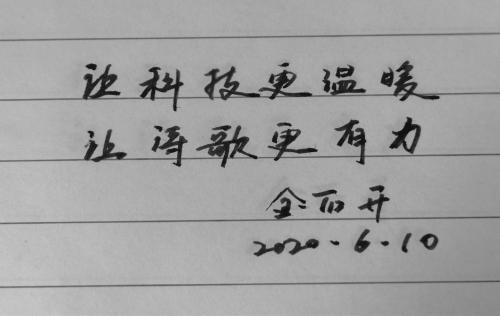 让科技更温暖
让诗歌更有力
金石开
2020.6.10